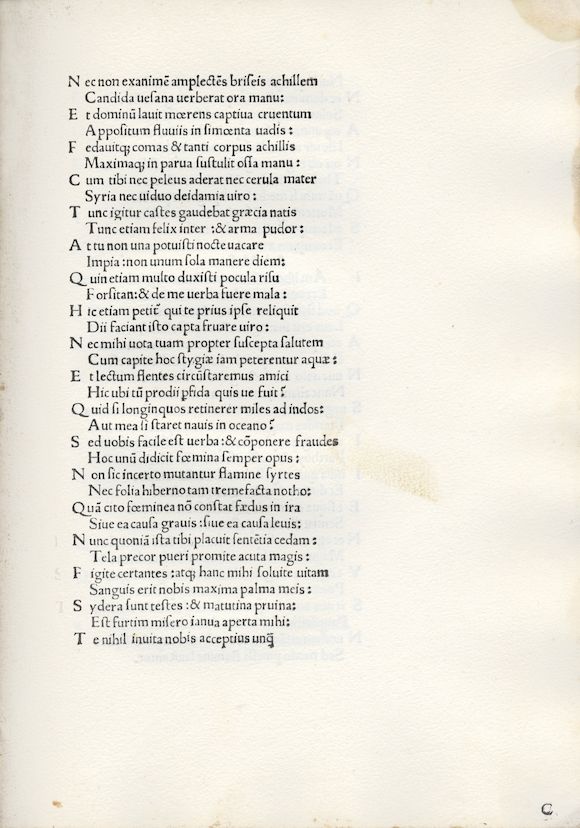 N ec non exanimē amplectēs briſeis achillem
Candida ueſana uerberat ora manu:
E t dominū lauit mœrens captiua cruentum
Appoſitum fluuiis in ſimoenta uadis:
F edauitq; comas & tanti corpus achillis
Maximaq; in parua ſuſtulit oſſa manu:
C um tibi nec peleus aderat nec cerula mater
Syria nec uiduo deidamia uiro:
T unc igitur caſtes gaudebat græcia natis
Tunc etiam felix inter :& arma pudor:
A t tu non una potuiſti nocte uacare
Impia :non unum ſola manere diem:
Q uin etiam multo duxiſti pocula riſu
Forſitan:& de me uerba fuere mala:
H ic etiam petit᷑ qui te prius ipſe reliquit
Dii faciant iſto capta fruare uiro:
N ec mihi uota tuam propter ſuſcepta ſalutem
Cum capite hoc ſtygiæ iam peterentur aquæ:
E t lectum flentes circūſtaremus amici
Hic ubi tū prodii ꝑfida quis ue fuit?
Q uid ſi longinquos retinerer miles ad indos:
Aut mea ſi ſtaret nauis in oceano?
S ed uobis facile eſt uerba :& cōponere fraudes
Hoc unū didicit fœmina ſemper opus:
N on ſic incerto mutantur flamine ſyrtes
Nec folia hiberno tam tremefacta notho:
Quā cito fœminea nō conſtat fœdus in ira
Siue ea cauſa grauis :ſiue ea cauſa leuis:
N unc quoniā iſta tibi placuit ſentētia cedam:
Tela precor pueri promite acuta magis:
F igite certantes :atq; hanc mihi ſoluite uitam
Sanguis erit nobis maxima palma meis:
S ydera ſunt teſtes :& matutina pruina:
Eſt furtim miſero ianua aperta mihi:
T e nihil inuita nobis acceptius unq̄
C